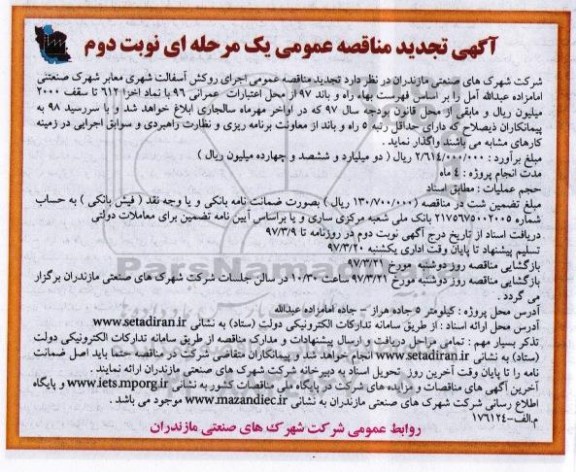 آگهی تجدید مناقصه عمومی یک مرحله ای نوبت دوم
شرکت شهرک های صنعتی مازندران در نظر دارد تجدید مناقصه عمومی اجرای روکش آسفالت شهری معابر شهرک صنعتی
امامزاده عبدالله آمل را بر اساس فهرست بهاء راه و باند ۹۷ از محل اعتبارات عمرانی ۹۶ با نماد اخزا ۶۱۲ تا سقف ۲۰۰۰
میلیون ریال و مابقی از محل قانون بودجه سال ۹۷ که در اواخر مهرماه سالجاری ابلاغ خواهد شد و با سررسید ۹۸ به
پیمانکاران ذیصلاح که دارای حداقل رتبه ۵ راه و باند از معاونت برنامه ریزی و نظارت راهبردی و سوابق اجرایی در زمینه
کارهای مشابه می باشند واگذار نماید .
مبلغ برآورد : ۲/۶۱۴/۰۰۰/۰۰۰ ریال ( دو میلیارد و ششصد و چهارده میلیون ریال )
مدت انجام پروژه : ۴ ماه
حجم عملیات : مطابق اسناد
مبلغ تضمین شرکت در مناقصه (۱۳۰/۷۰۰/۰۰۰ ریال ) بصورت ضمانت نامه بانکی و یا وجه نقد ( فیش بانکی ) به حساب
شماره ۲۱۷۵۶۷۵۰۰۲۰۰۵ بانک ملی شعبه مرکزی ساری و یا براساس آیین نامه تضمین برای معاملات دولتی
دریافت اسناد از تاریخ درج آگهی نوبت دوم در روزنامه تا ۹۷/۳/۹
تسلیم پیشنهاد تا پایان وقت اداری یکشنبه ۹۷/۳/۲۰
بازگشایی مناقصه روز دوشنبه مورخ ۹۷/۳/۲۱
بازگشایی مناقصه روز دوشنبه مورخ ۹۷/۳/۲۱ ساعت ۱۰/۳۰ در سالن جلسات شرکت شهرک های صنعتی مازندران برگزار
می گردد .
آدرس محل پروژه : کیلومتر ۵ جاده هراز - جاده امامزاده عبدالله
آدرس محل ارائه اسناد : از طریق سامانه تدارکات الکترونیکی دولت (ستاد) به نشانی www.setadiran.ir
تذکر بسیار مهم : تمامی مراحل دریافت و ارسال پیشنهادات و مدارک مناقصه از طریق سامانه تدارکات الکترونیکی دولت
(ستاد) به نشانی www.setadiran.ir انجام خواهد شد و پیمانکاران متقاضی شرکت در مناقصه حتما باید اصل ضمانت
نامه را تا پایان وقت آخرین روز تحویل اسناد به دبیرخانه شرکت شهرک های صنعتی مازندران ارائه نمایند .
آخرین آگهی های مناقصات و مزایده های شرکت در پایگاه ملی مناقصات کشور به نشانی www.iets.mporg.ir و پایگاه
اطلاع رسانی شرکت شهرک های صنعتی مازندران به نشانی www.mazandiec.ir موجود می باشد .
م.الف-۱۷۶۱۲۴
روابط عمومی شرکت شهرک های صنعتی مازندران